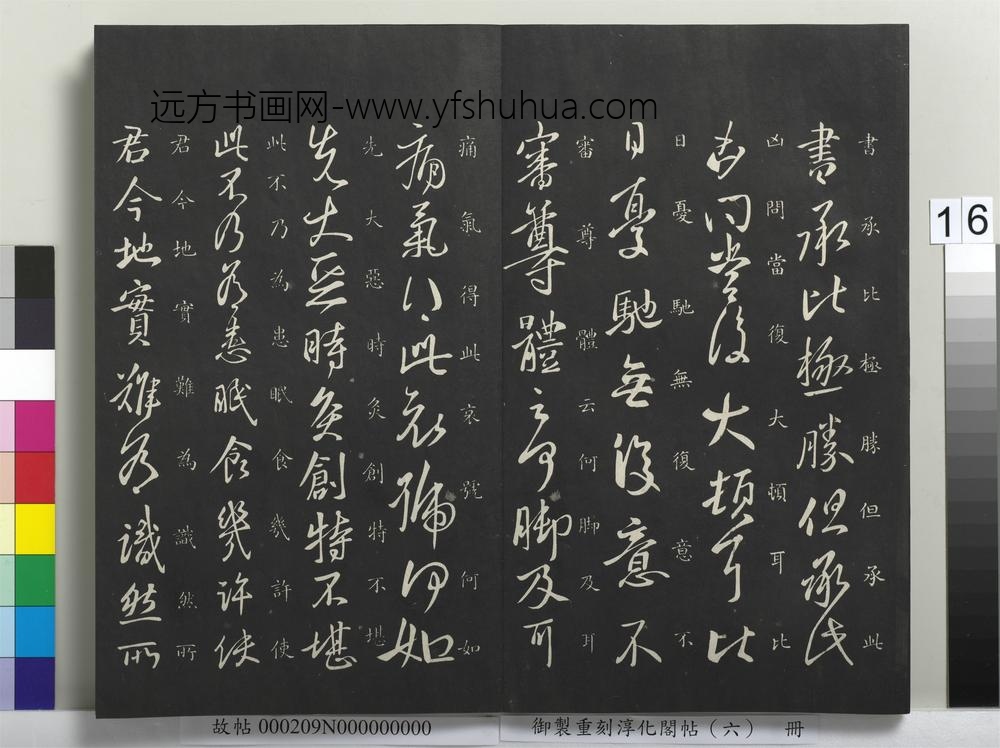 远方书画网-www.yfshuhua.com
書承比極勝但承此
書承比極勝但承此
凶問當復大頓耳比
凶問當復大頓耳比
日憂馳無復意不
日憂馳無復意不
審尊體云何脚及耳
審尊體云何脚及耳
痛氣得此哀號何如
痛氣得此哀號何如
先大惡時灸創特不堪
先大惡時灸創特不堪
此不乃為患眠食幾許使
此不乃為患眠食幾許使
君今地實難為識然所
君今地實難為識然所
16
故帖 000209N000000000
御製重刻淳化閣帖(六) 冊